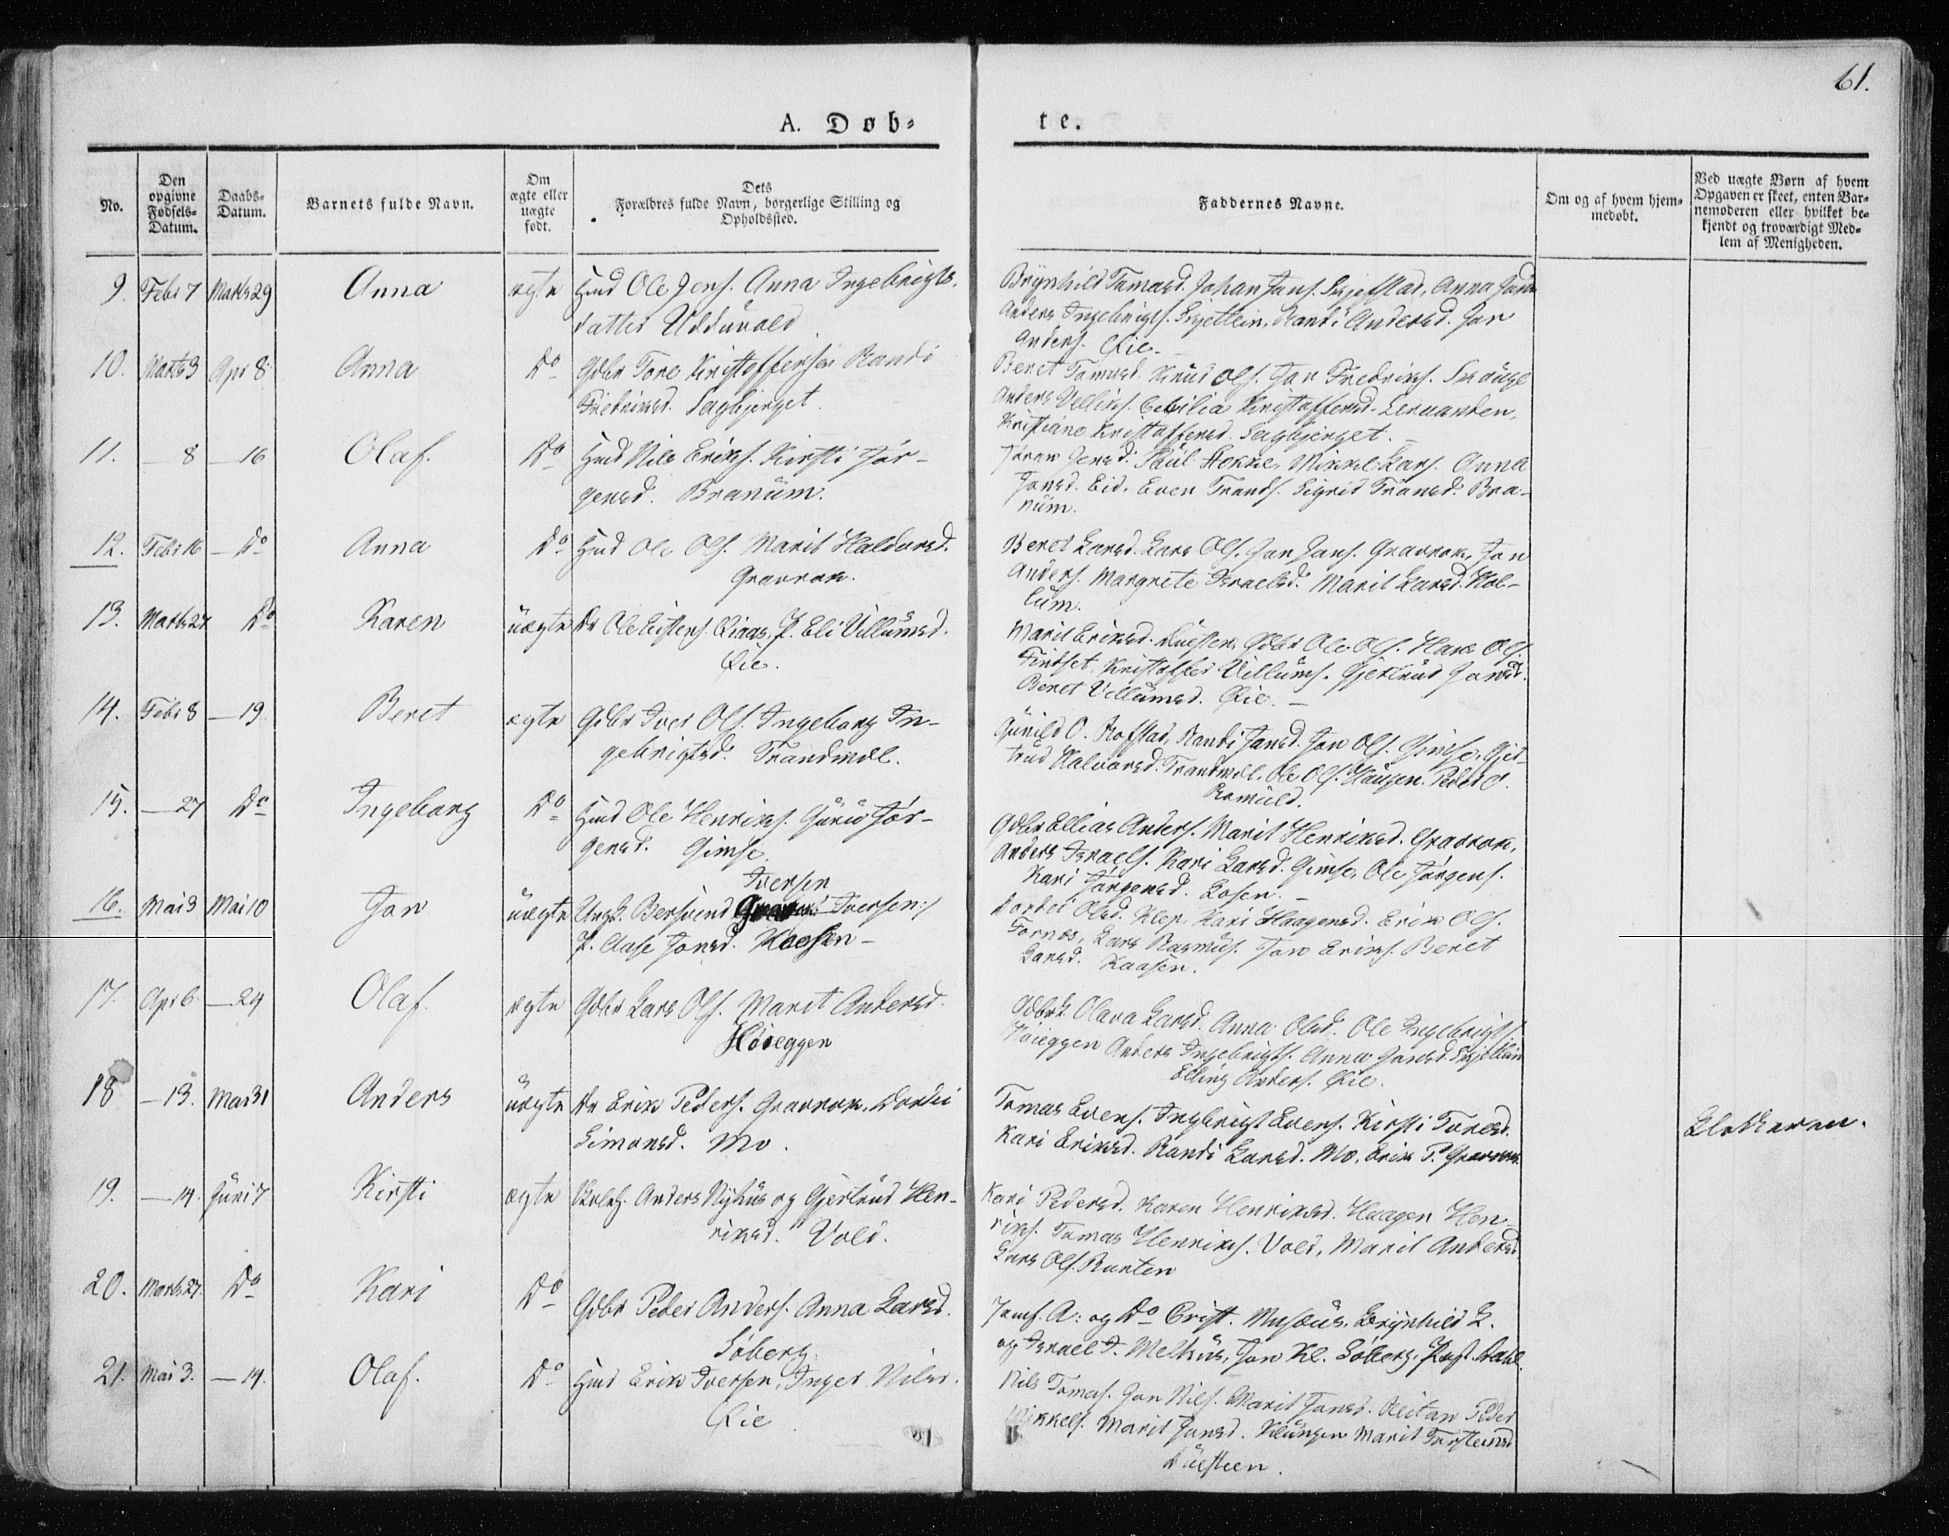 61.
A. Døb-
te.
No.
Den opgivne Fødsels-Datum.
Daabs-Datum.
Barnets fulde Navn.
Om ægte eller uægte født.
Dets
Forældres fulde Navn, borgerlige Stilling og Opholdssted.
Faddernes Navne.
Om og af hvem hjemmedøbt.
Ved uægte Børn af hvem Opgaven er skeet, enten Barnemoderen eller hvilket bekjendt og troværdigt Medlem af Menigheden.
9. Febr 7 Marts 29 Anna ægte Hmd Ole Jens. Anna Ingebrigts-
datter Uddüvold
Brynhild Tomasd. Johan Jons. Skjefstad, Anna Jons
Anders Ingebrigts. Skjetlein, Randi Andersd. Jon
Anders. Øie.
10. Marts 3 Apr 8 Anna Do Gdbr Tore Kristoffersen Randi
Fredriksd. Sagbjerget.
Beret Tomasd. Knüd Ols. Jon Fredriks. Skaüge
Anders Cecilia Kristoffersd.
Kristiane Kristoffersd. Sagbjerget.
11. — 8 — 16 Olaf. Do Hmd Nils Eriks. Kirsti Jør-
gensd. Branüm.
Jensd. Paül Mikkel Lars. Anna
Jonsd. Eid. Even Tronds. Sigrid Bra-
nüm.
12. Febr 16 — Do Anna Do Hmd Ole Ols. Marit Haldorsd.
Gravrok.
Beret Larsd. Lars Ols. Jon Jons. Gravrok, Jon
Anders. Margrete Israelsd. Marit Larsd. Kol-
lüm.
13. Marts 27 Do Karen üægte P. Eli Villümsd.
Øie.
Marit Eriksd. Gdbr Ole Ols. Hans Ols.
Kristoffer Villüms. Gjertrüd Jonsd.
Beret Villümsd. Øie. —
14. Febr 8 — 19 Beret ægte Gdbr Iver Ols. Ingeborg In-
gebrigtsd. Trandmæl.
Günild O. Rofstad, Randi Jonsd. Jon Ols. Gimse, Gjer-
trüd Halvorsd. Trandmæl, Ole Ols. Haügen. Peder O.
15. — 27 Do Ingeborg Do Hmd Ole Henriks. Gürü Jør-
gensd. Gimse.
Gdbr Ellias Anders. Marit Henriksd. Gravrok,
Anders Israels. Kari Larsd. Gimse, Ole Jørgens.
Kari Jørgensd. Losen. —
16. Mai 3 Mai 10 Jon üægte Ungk. Bersvend Iversen
Iversen:/
P. Aase Jonsd. Kaasen —
Dordei Olsd. Klep, Kari Haagensd. Erik Ols.
Fornes, Lars Rasmüs. Jon Eriks. Beret
Larsd. Kaasen.
17. Apr 6 — 24 Olaf. ægte Gdbr Lars Ols. Marit Andersd.
Høieggen
Olava Larsd. Anna Olsd. Ole Ingebrigts.
Høieggen Anders Ingebrigts. Anna Jonsd. Skjetlein
Elling Anders. Øie.
18 — 13. Mai 31 Anders üægte Dr Erik Peders. Gravrok. Dordei
Simonsd. Mo.
Tomas Evens. Ingebrigt Evens. Kirsti Toresd.
Kari Eriksd. Randi Larsd. Mo, Erik P. Gravrok
Klokkeren.
19. — 14. Jüni 7 Kirsti ægte Anders Nyhüs og Gjertrüd Hen-
riksd. Vold.
Kari Pedersd. Karen Henriksd. Haagen Hen-
riks. Tomas Henriks. Vold, Marit Andersd.
Lars Ols. Runten
20. Marts 27. Do Kari Do Gdbr Peder Anders. Anna Larsd.
Søberg.
Jomf. A: og Do Crist. Müsæüs, Brynhild L.
og Israel J. Melhüs, Jon Kl. Søberg,
21. Mai 3. — 14. Olaf. Do Hmd Erik Iversen, Inger Nilsd.
Øie
Nils Tomas. Jon Nils. Marit Jonsd. Reitan Peder
Mikkels. Marit Jonsd. Klüngen Marit Torsteinsd